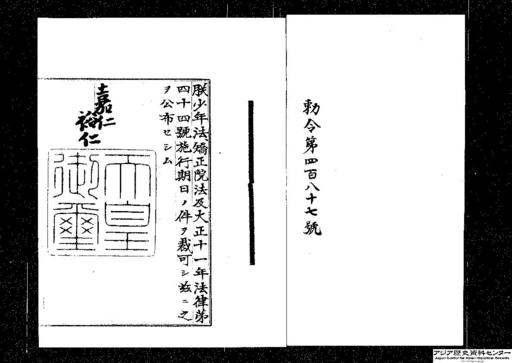 勅令第四百八十七號
朕少年法矯正院法及大正十一年法律第
四十四號施行期日ノ件ヲ裁可シ玆ニ之
ヲ公布セシム
嘉仁
裕仁
天皇
御璽
アジア歴史資料センター
Japan Center for Asian Historical Records